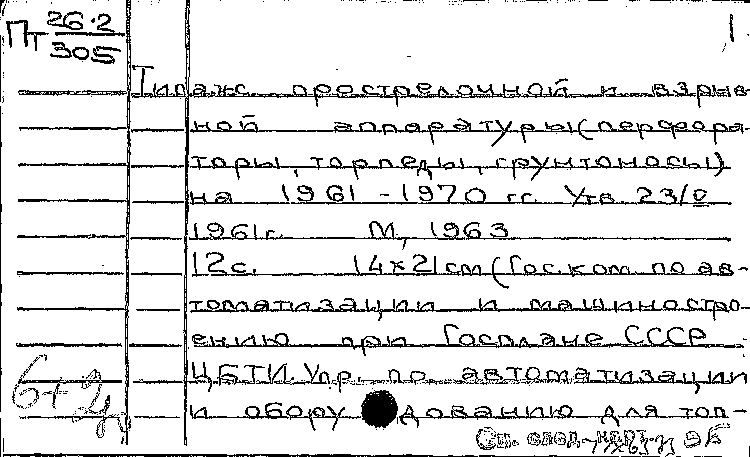 Пт 26.2/305
1
Типаж прострелочной и взрыв-
ной аппаратуры (перфора-
торы, торпеды, грунтоносы)
на 1961-1970 гг. Утв. 23/V
1961г. М., 1963
12с. 14х21см (Гос. ком. по ав-
томатизации и машиностро-
ению при Госплане СССР
ЦБТИ. Упр. по автоматизации
и оборудованию для топ-
6+2
См. след. карт.